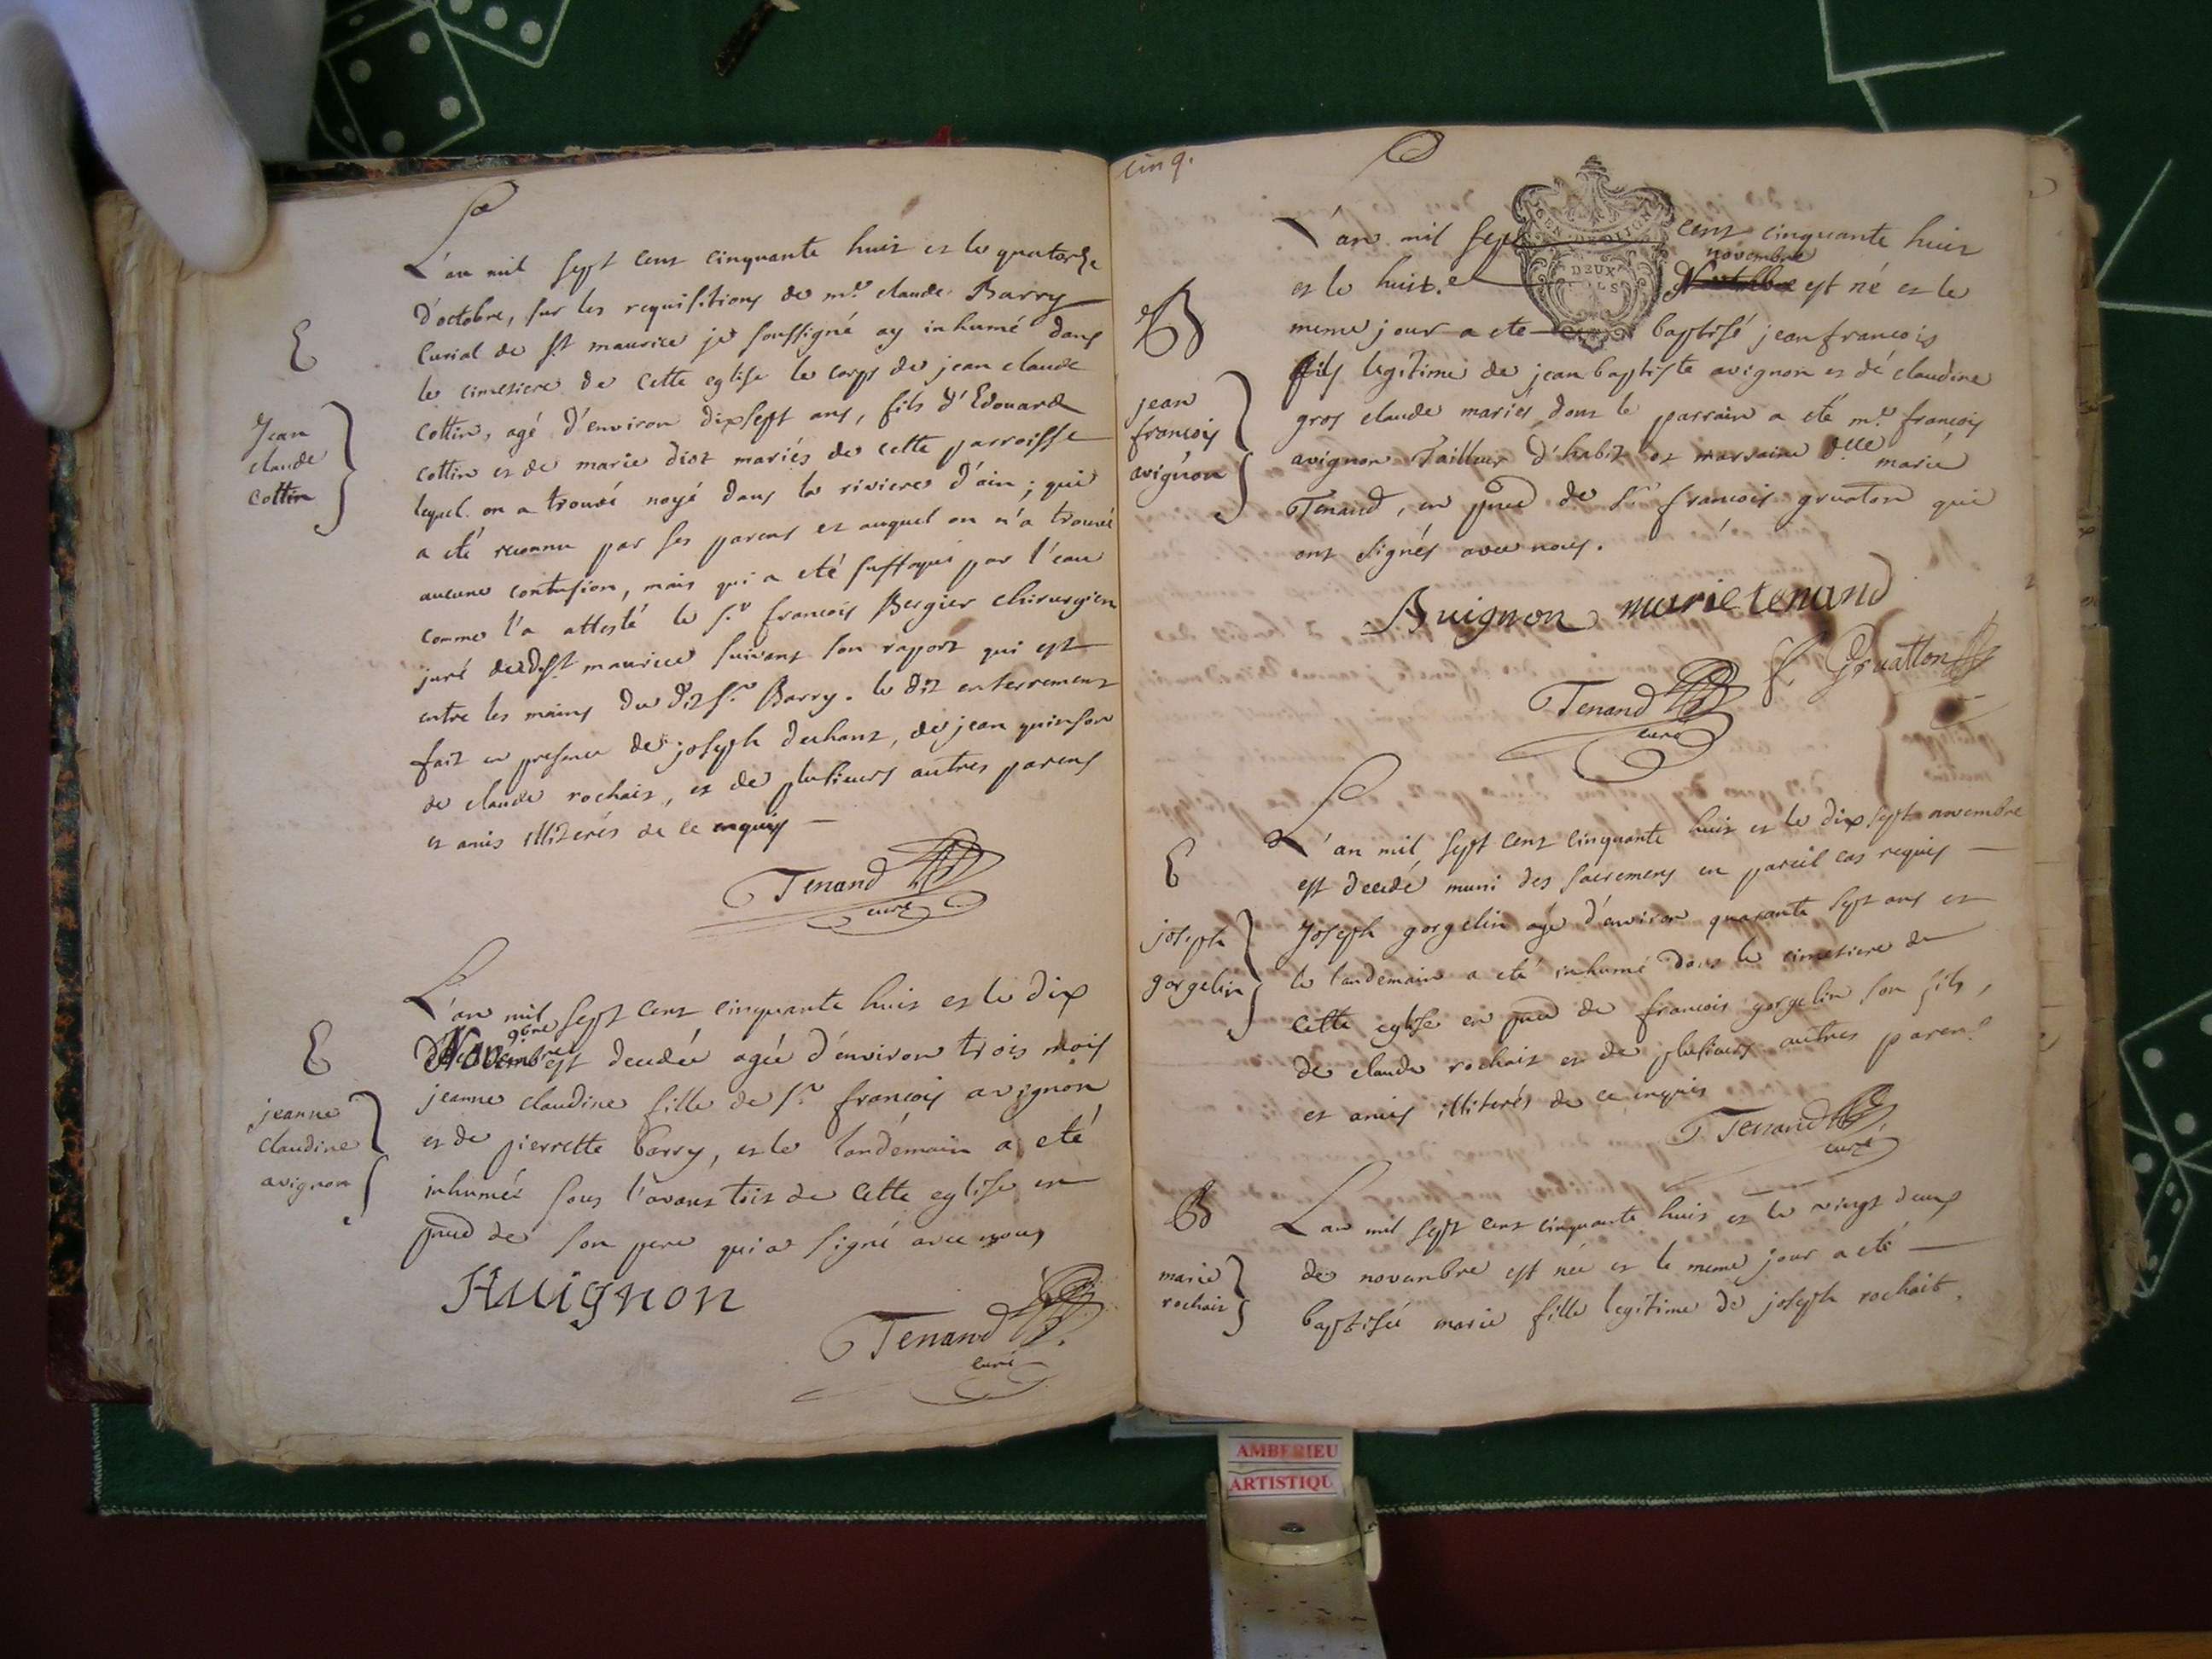 L'an mil sept cent cinquante huit et le quatorze
E
d'octobre, sur les requisitions de mr. claude Barry
curial de st maurice je soussigné ay inhumé dans
le cimetiere de cette eglise le corps de jean claude
Jean
claude
cottin
cottin, agé d'environ dix sept ans, fils d'Edouard
cottin et de marie diot mariés de cette parroisse
lequel on a trouvé noyé dans la riviere d'ain ; qui
a eté reconnu par ses parens et auquel on n'a trouvé
aucune contusion, mais qui a eté suffoqué par l'eau
comme l'a attesté le sr. francois Bergier chirurgien
juré dud st maurice suivant son raport qui est
entre les mains du dit sr. Barry. le dit enterrement
fait en presence de joseph dechant, de jean quinson
de claude rochait, et de plusieurs autres parens
et amis illiterés de ce enquis
Tenand
curé
L'an mil sept cent cinquante huit et le dix
9bre
E
Novembre est decedée agée d'environ trois mois
jeanne
claudine
avignon
jeanne claudine fille de sr. francois avignon
et de pierrette barry, et le landemain a eté
inhumée sous l'avant toit de cette eglise en
pnce de son pere qui a signé avec nous
Auignon
Tenand
curé
cinq.
GEN DE DIJON
DEUX
SOLS
L'an mil sept cent cinquante huit
novembre
et le huit est né et le
B
meme jour a eté baptisé jean francois
jean
francois
avignon
fils legitime de jean baptiste avignon et de claudine
gros claude mariés, dont le parrain a eté mr. francois
avignon Tailleur d'habit et marraine dlle marie
Tenand, en pnce de sr francois gruaton qui
ont signés avec nous.
Auignon marie tenand
f. Gruatton
Tenand
curé
L'an mil sept cent cinquante huit et le dix sept novembre
E
est decedé muni des sacremens en pareil cas requis
joseph
gorgelin
Joseph gorgelin agé d'environ quarante sept ans et
le landemain a eté inhumé dans le cimetiere de
cette eglise en pnce de francois gorgelin son fils,
de claude rochait et de plusieurs autres parens
et amis illiterés de ce enquis
Tenand
curé
B
L'an mil sept cent cinquante huit et le vingt deux
marie
rochait
de novembre est née et le meme jour a eté
baptisée marie fille legitime de joseph rochait.
AMBERIEU
ARTISTIQU